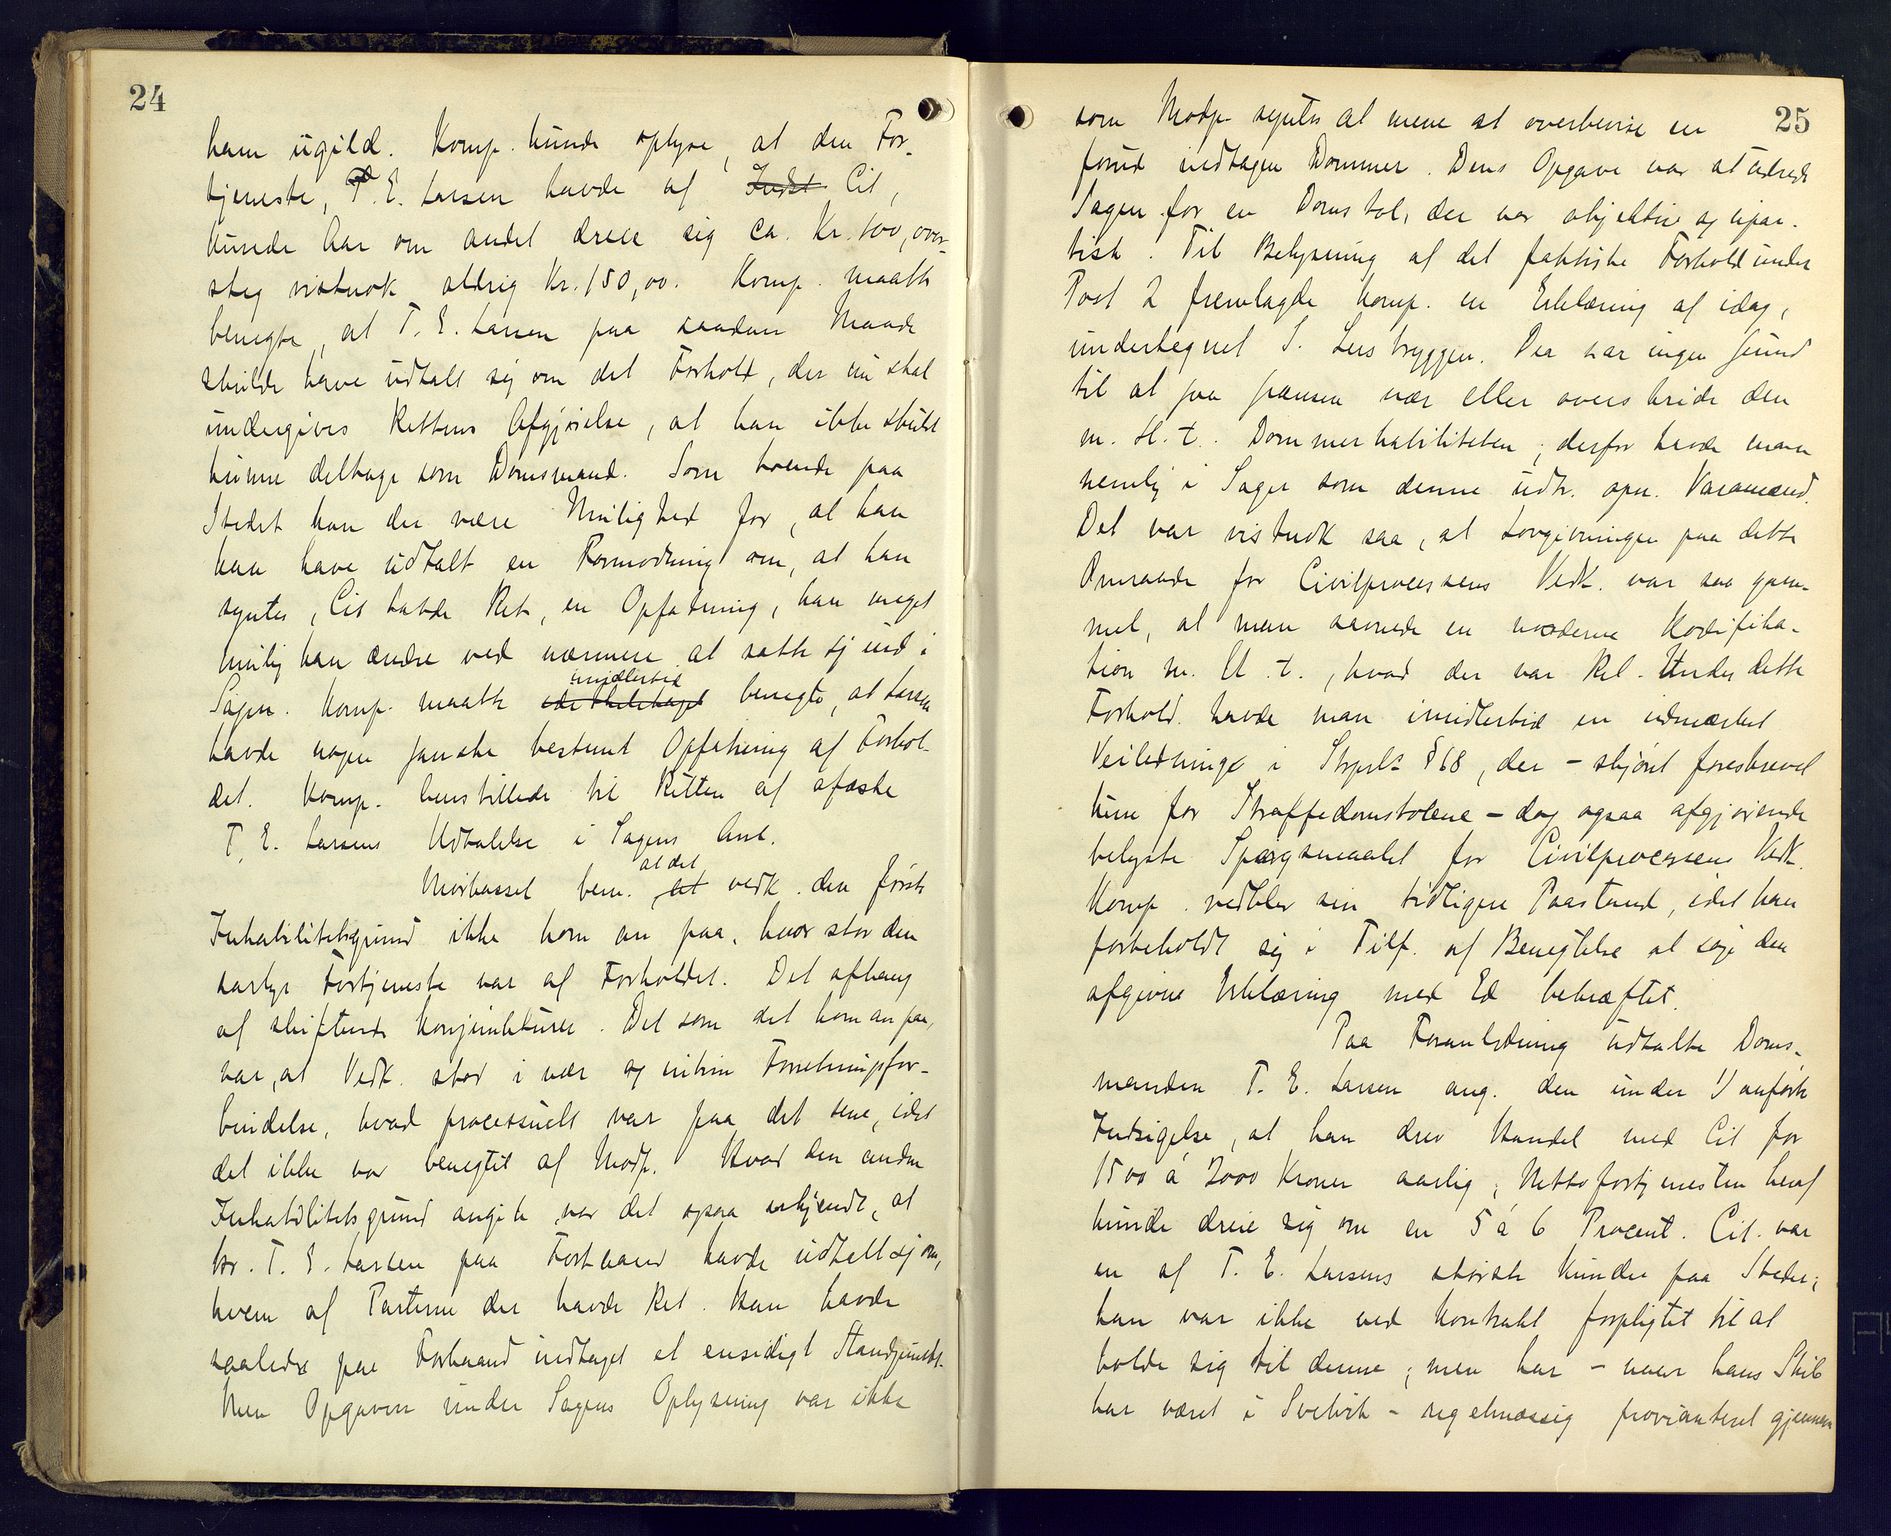 24
ham ugild. Komp. kunde oplyse, at den For-
tjeneste, T. E. Larsen havde af Indst Cit,
kunde Aar om andet dreie sig ca. Kr. 100, over-
steg vistnok aldrig Kr. 150,00. Komp. maatte
benegte, at T. E. Larsen paa saadan Maade
skulde have udtalt sig om det Forhold, der nu skal
undergives Rettens Afgjørelse, at han ikke skulde
kunne deltage som Domsmand. Som boende paa
Stedet kan der være Mulighed for, at han
kan have udtalt en Formodning om, at han
syntes, Cit havde Ret, en Opfatning, han meget
mulig kan ændre ved nærmere at sætte sig ind i
Sagen. Komp. maatte imidlertid benegte, at Larsen
havde nogen ganske bestemt Opfatning af Forhol-
det. Komp. henstillede til Retten at afæske
T. E. Larsens Udtalelse i Sagens Anl.
Mørbassel bem. at det vedk. den første
Inhabilitetsgrund ikke kom an paa, hvor stor den
aarlige Fortjeneste var af Forholdet. Det afhang
af skiftende Konjunkturer. Det som det kom an paa,
var, at Vedk. stod i nær og intim Forretningsfor-
bindelse, hvad processuelt var paa det rene, idet
det ikke var benegtet af Modp. Hvad den anden
Inhabilitetsgrund angik var det ogsaa erkjendt, at
hr. T. E. Larsen paa Forhaand havde udtalt sig om,
hvem af Parterne der havde Ret. Han havde
saaledes paa Forhaand indtaget et ensidigt Standpunkt.
Men Opgaven under Sagens Oplysning var ikke
25
som Modp. syntes at mene at overbevise en
forud indtagen Dommer. Dens Opgave var at udrede
Sagen for en Domstol, der var objektiv og upar-
tisk. Til Belysning af det faktiske Forhold under
Post 2 fremlagde Komp. en Erklæring af idag,
undertegnet S. Lersbryggen. Der var ingen Grund
til at gaa Grænsen nær eller overskride den
m. H. t. Dommerhabiliteten; derfor havde man
nemlig i Sager som denne udtr. opn. Varamænd.
Det var vistnok saa, at Lovgivningen paa dette
Omraade for Civilprocessens Vedk. var saa gam-
mel, at man savnede en moderne Kodifika-
tion m. H. t., hvad der var Ret. Under dette
Forhold havde man imidlertid en udmærket
Veiledning i Strprl. § 68, der – skjønt foreskrevet
kun for Straffedomstolene – dog ogsaa afgjørende
belyste Spørgsmaalet for Civilprocessens Vedk.
Komp. vedblev sin tidligere Paastand, idet han
forbeholdt sig i Tilf. af Benegtelse at søge den
afgivne Erklæring med Ed bekræftet.
Paa Foranledning udtalte Doms-
manden T. E. Larsen ang. den under 1) anførte
Indsigelse, at han drev Handel med Cit for
1500 à 2000 Kroner aarlig; Nettofortjenesten heraf
kunde dreie sig om en 5 à 6 Procent. Cit. var
en af T. E. Larsens største Kunder paa Stedet;
han var ikke ved Kontrakt forpligtet til at
holde sig til denne; men har – naar hans Skib
har været i Svelvik – regelmæssig provianteret gjennem